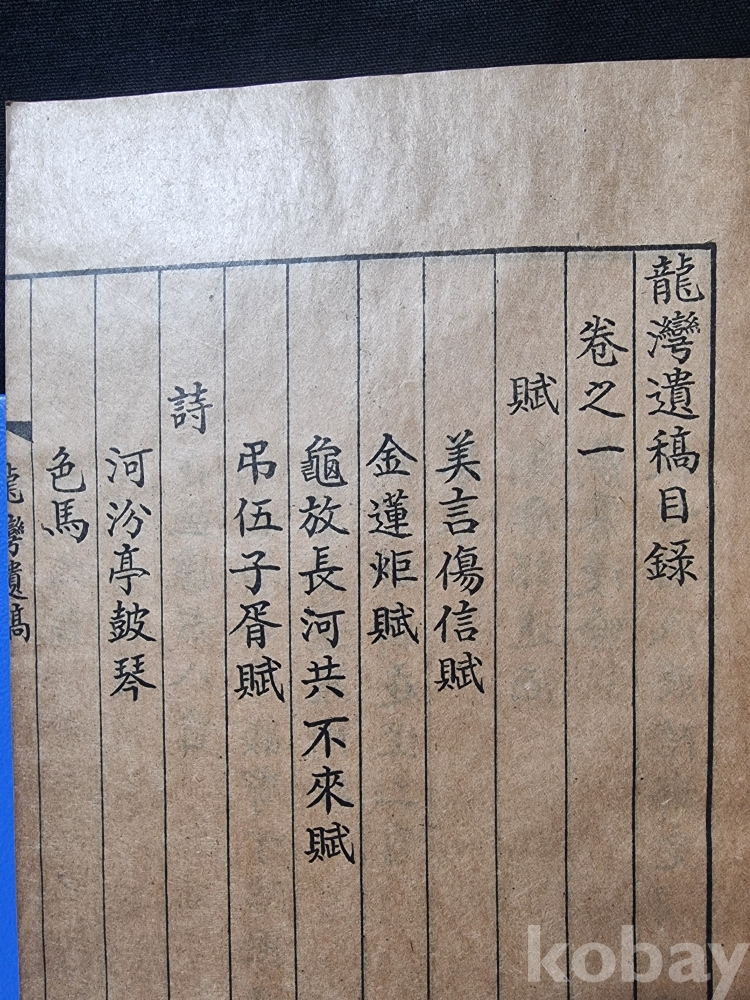 龍灣遺稿目錄
卷之一
賦
美言傷信賦
金蓮炬賦
龜放長河共不來賦
弔伍子胥賦
詩
河汾亭皷琴
色馬
龍灣遺稿
kobay